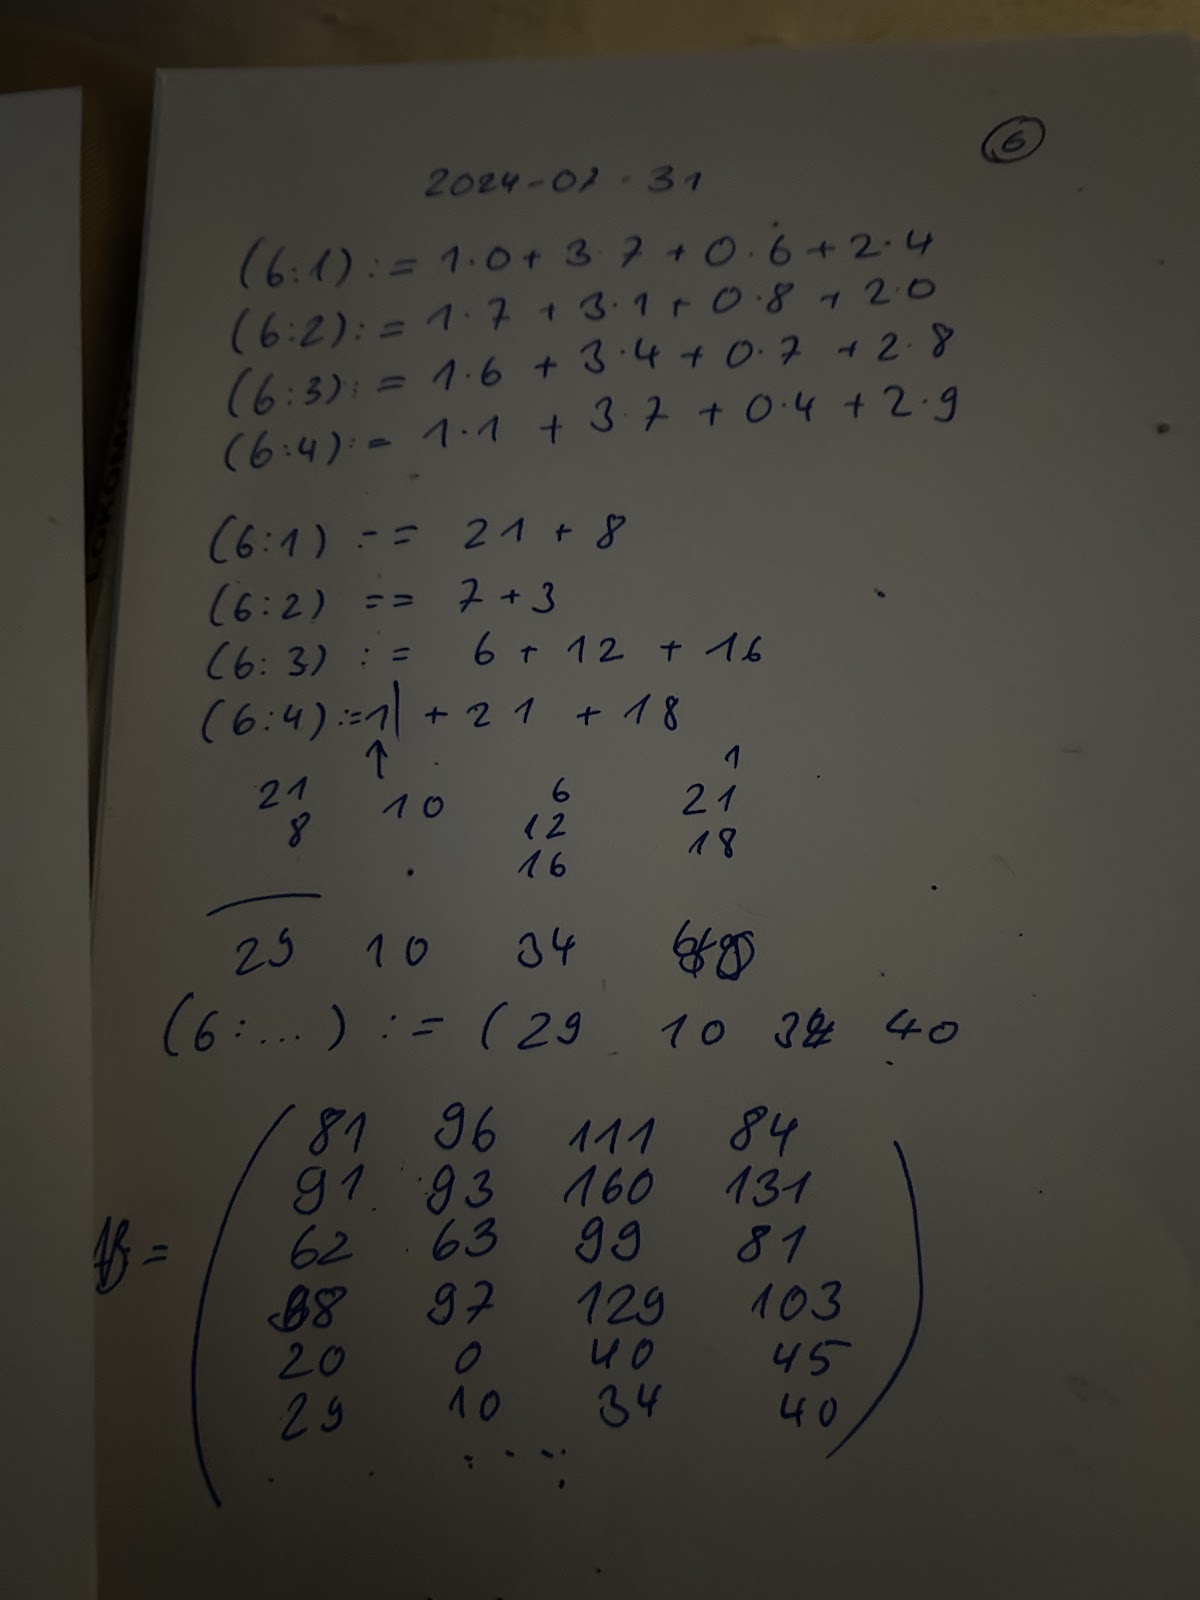 6
2024-07-31
(6:1) := 1·0 + 3·7 + 0·6 + 2·4
(6:2) := 1·7 + 3·1 + 0·8 + 2·0
(6:3) := 1·6 + 3·4 + 0·7 + 2·8
(6:4) := 1·1 + 3·7 + 0·4 + 2·9
(6:1) := 21 + 8
(6:2) == 7 + 3
(6:3) := 6 + 12 + 16
(6:4) := 1| + 21 + 18
↑ 1
21 10 6 21
8 12 18
16
29 10 34
(6:...) := (29 10 34 40
81 96 111 84
91 93 160 131
AB = 62 63 99 81
98 97 129 103
20 0 40 45
29 10 34 40